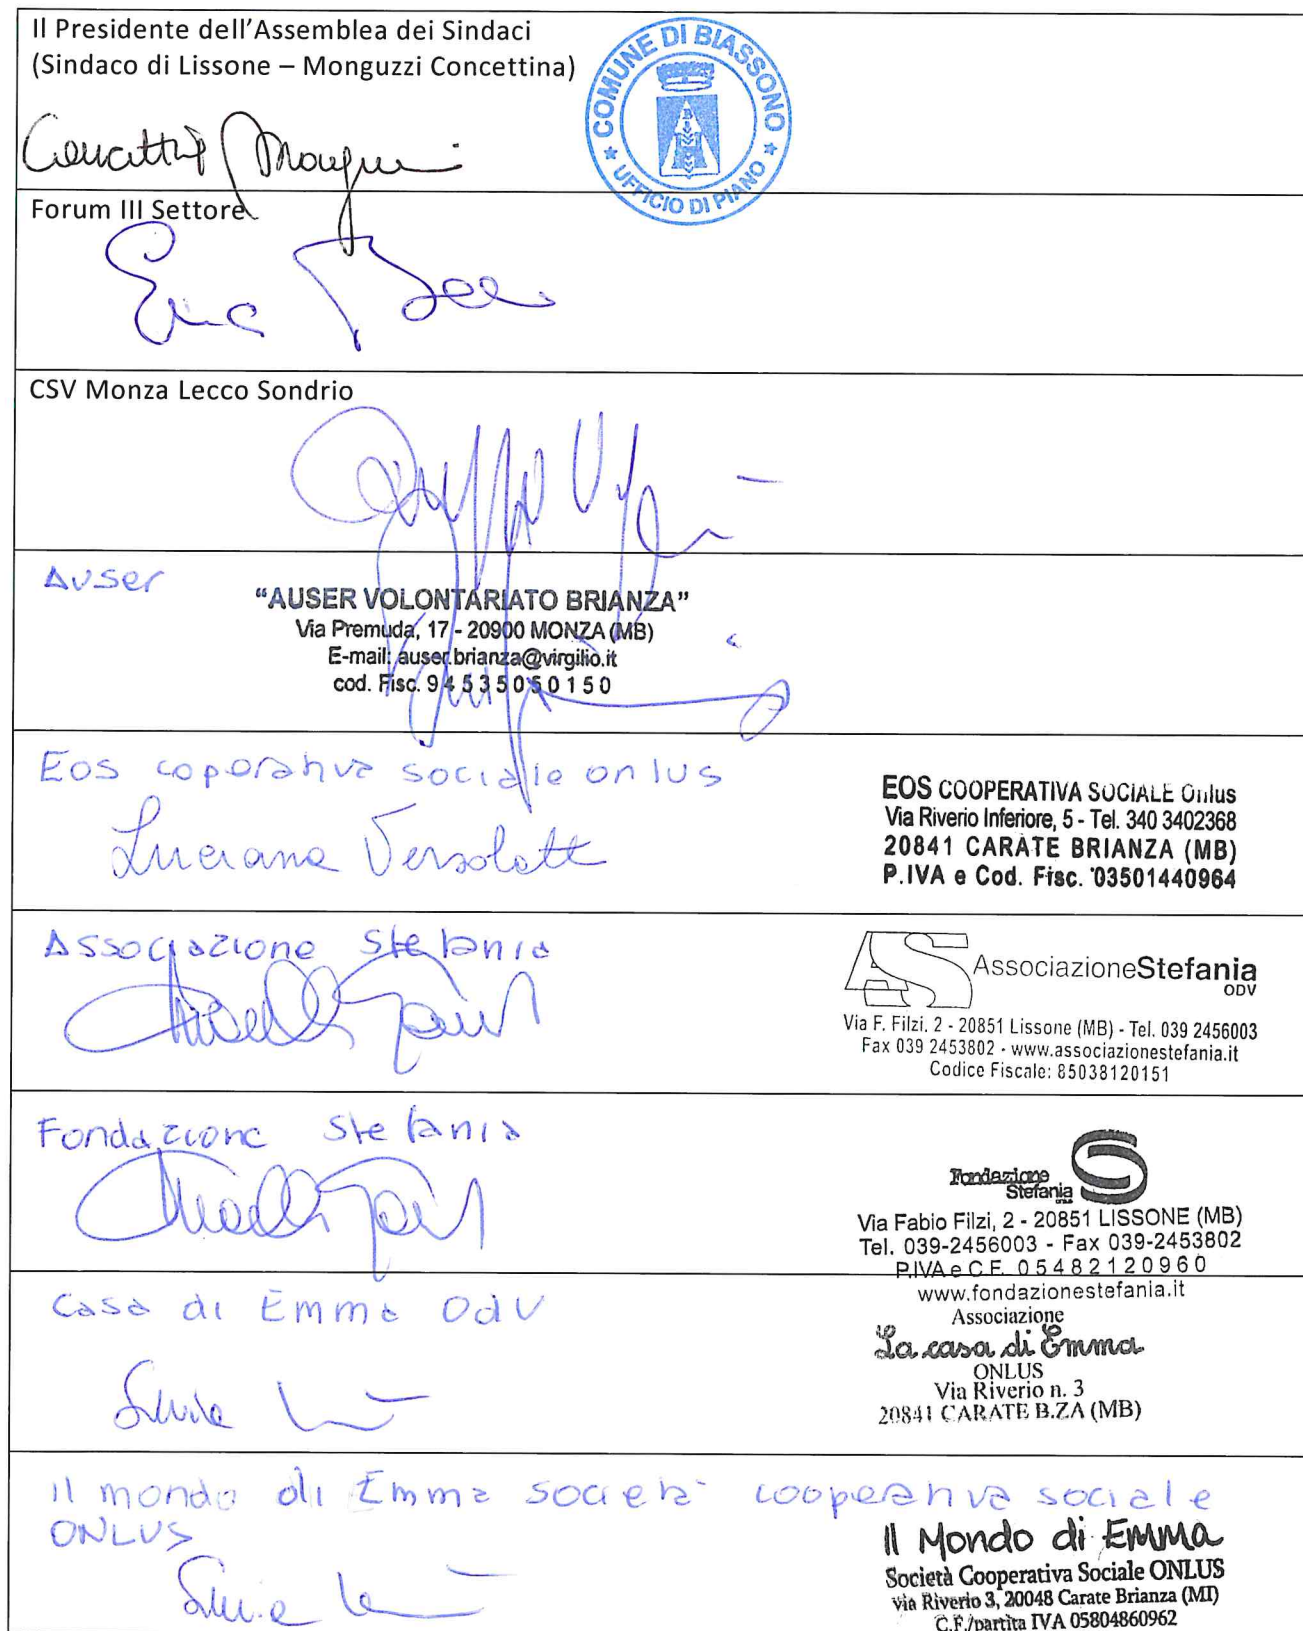 Il Presidente dell'Assemblea dei Sindaci
(Sindaco di Lissone – Monguzzi Concettina)
COMUNE DI BIASSONO
UFFICIO DI PIANO
Forum III Settore
CSV Monza Lecco Sondrio
Auser
"AUSER VOLONTARIATO BRIANZA"
Via Premuda, 17 - 20900 MONZA (MB)
E-mail: auser.brianza@virgilio.it
cod. Fisc. 94535050150
Eos coperativa sociale onlus
EOS COOPERATIVA SOCIALE Onlus
Via Riverio Inferiore, 5 - Tel. 340 3402368
20841 CARATE BRIANZA (MB)
P.IVA e Cod. Fisc. 03501440964
Luciana
Associazione Stefania
AS AssociazioneStefania
ODV
Via F. Filzi, 2 - 20851 Lissone (MB) - Tel. 039 2456003
Fax 039 2453802 - www.associazionestefania.it
Codice Fiscale: 85038120151
Fondazione Stefania
Fondazione
Stefania
Via Fabio Filzi, 2 - 20851 LISSONE (MB)
Tel. 039-2456003 - Fax 039-2453802
P.IVA e C.F. 05482120960
www.fondazionestefania.it
Casa di Emma OdV
Associazione
La casa di Emma
ONLUS
Via Riverio n. 3
20841 CARATE B.ZA (MB)
Il mondo di Emma società cooperativa sociale
ONLUS
Il Mondo di Emma
Società Cooperativa Sociale ONLUS
Via Riverio 3, 20048 Carate Brianza (MI)
C.F./partita IVA 05804860962